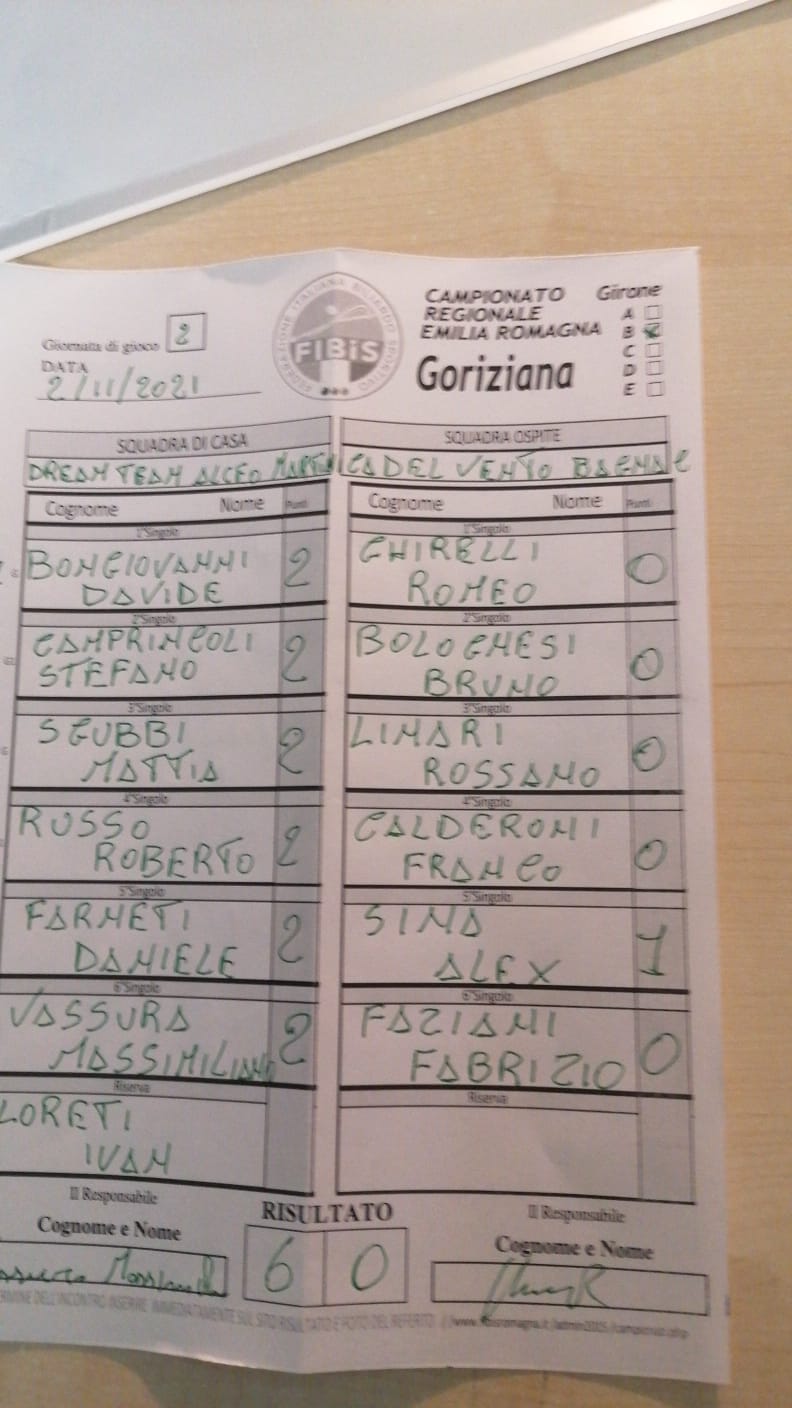 Giornata di gioco 2
DATA
2/11/2021
FEDERAZIONE ITALIANA BILIARDO SPORTIVO
FIBiS
CAMPIONATO
REGIONALE
EMILIA ROMAGNA
Goriziana
Girone
A
B
C
D
E
SQUADRA DI CASA
SQUADRA OSPITE
DREAM TEAM ALCEO
DEL VENTO
Cognome Nome Punti
Cognome Nome Punti
1°Singolo
1°Singolo
BONGIOVANNI
DAVIDE 2
GHIRELLI
ROMEO 0
2°Singolo
2°Singolo
CAMPRINCOLI
STEFANO 2
BOLOGNESI
BRUNO 0
3°Singolo
3°Singolo
SGUBBI
MATTIA 2
LINARI
ROSSANO 0
4°Singolo
4°Singolo
RUSSO
ROBERTO 2
CALDERONI
FRANCO 0
5°Singolo
5°Singolo
FARNETI
DANIELE 2
SINA
ALEX 1
6°Singolo
6°Singolo
VASSURA
MASSIMILIANO 2
FAZIANI
FABRIZIO 0
Riserva
Riserva
LORETI
IVAN
Il Responsabile
Cognome e Nome
RISULTATO
6 0
Il Responsabile
Cognome e Nome
TERMINE DELL'INCONTRO INSERIRE IMMEDIATAMENTE SUL SITO RISULTATO E FOTO DEL REFERTO